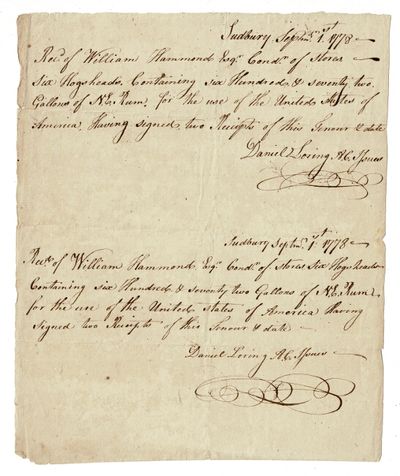 Sudbury Septm 1st 1778
Recd of William Hammond Esqr Condr of Stores
Six Hogsheads, Containing six Hundred & seventy two
Gallons of N.E. Rum, for the use of the United States of
America, Having signed two Receipts of this Tenour & date
Daniel Loring A.C. Issues
Sudbury Septm 1st 1778
Recd of William Hammond Esqr Condr of Stores Six Hogsheads
Containing six Hundred & seventy two Gallons of N.E. Rum
for the use of the United States of America Having
Signed two Receipts of this Tenour & date
Daniel Loring A.C. Issues